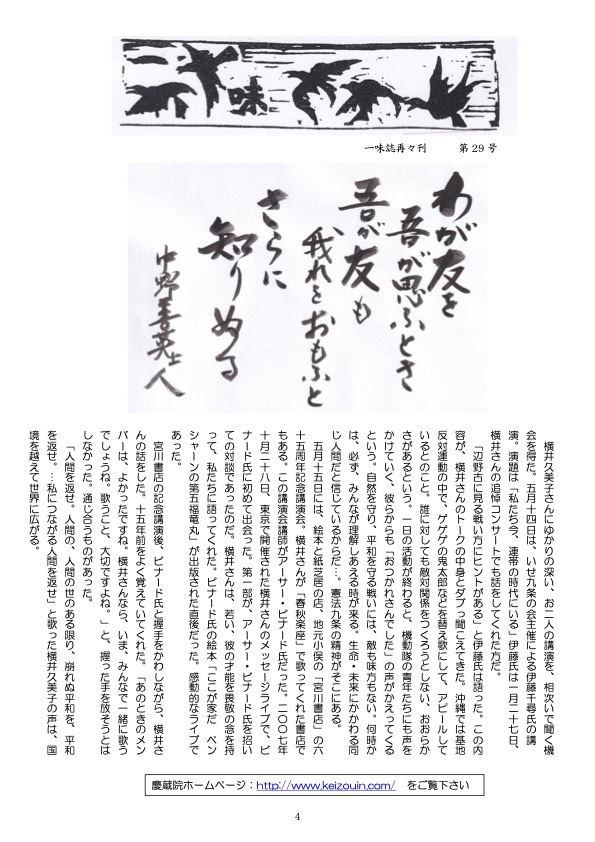 一味
一味誌再々刊　　第29号
わが友を
吾が思ふとき
吾が友も
我れをおもふと
さらに
知りぬる
中野善英士人
横井久美子さんにゆかりの深い、お二人の講演を、相次いで聞く機
会を得た。五月十四日は、いせ九条の会主催による伊藤千尋氏の講
演。演題は「私たち今、連帯の時代にいる」伊藤氏は一月二十七日、
横井さんの追悼コンサートでも話をしてくれた方だ。
「辺野古に見る戦い方にヒントがある」と伊藤氏は語った。この内
容が、横井さんのトークの中身とダブって聞こえてきた。沖縄では基地
反対運動の中で、ゲゲゲの鬼太郎などを替え歌にして、アピールして
いるとのこと。誰に対しても敵対関係をつくろうとしない、おおらか
さがあるという。一日の活動が終わると、機動隊の青年たちにも声を
かけていく、彼らからも「おつかれさんでした」の声がかえってくる
という。自然を守り、平和を守る戦いには、敵も味方もない。何時か
は、必ず、みんなが理解しあえる時が来る。生命・未来にかかわる同
じ人間だと信じているからだ…。憲法九条の精神がそこにある。
五月十五日には、絵本と紙芝居の店、地元小俣の「宮川書店」の六
十五周年記念講演会。横井さんが「春秋楽座」で歌ってくれた書店で
もある。この講演会講師がアーサー・ビナード氏だった。二〇〇七年
十月二十八日、東京で開催された横井さんのメッセージライブで、ビ
ナード氏に初めて出会った。第一部が、アーサー・ビナード氏を招い
ての対談であったのだ。横井さんは、若い、彼の才能を畏敬の念を持
って、私たちに語ってくれた。ビナード氏の絵本「ここが家だ　ベン
シャーンの第五福竜丸」が出版された直後だった。感動的なライブで
あった。
宮川書店の記念講演後、ビナード氏と握手をかわしながら、横井さ
んの話をした。十五年前をよく覚えていてくれた。「あのときのメン
バーは、よかったですね。横井さんなら、いま、みんなで一緒に歌う
でしょうね。歌うこと、大切ですよね。」と、握った手を放そうとは
しなかった。通じ合うものがあった。
「人間を返せ。人間の、人間の世のある限り、崩れぬ平和を、平和
を返せ。…私につながる人間を返せ」と歌った横井久美子の声は、国
境を越えて世界に広がる。
慶蔵院ホームページ：http://www.keizouin.com/　をご覧下さい
4